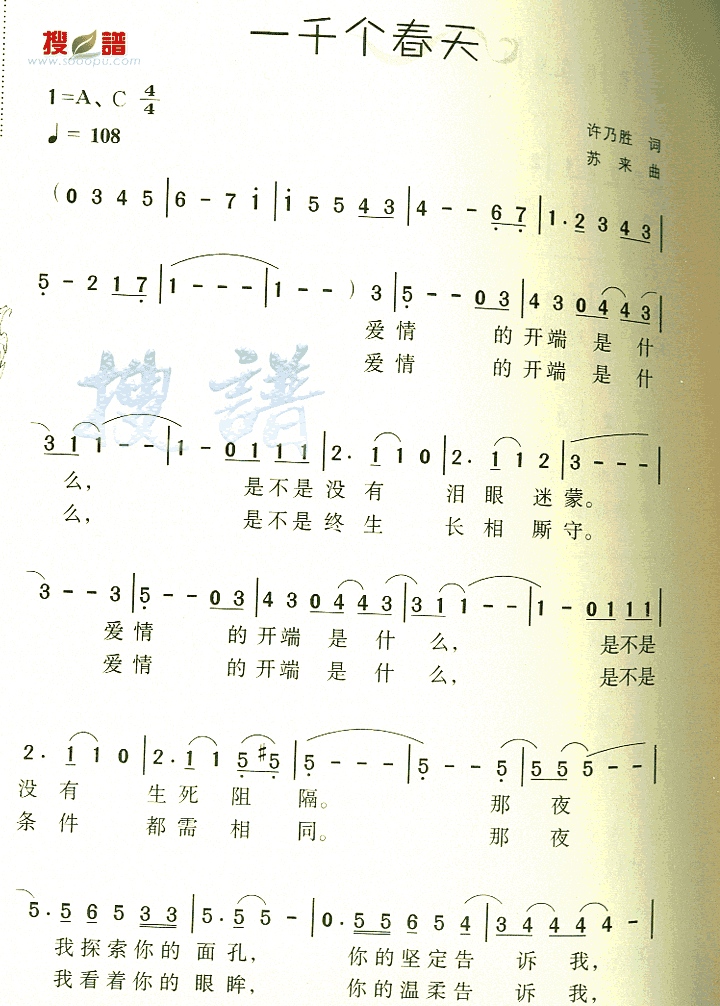 搜譜
www.sooopu.com
一千个春天
1=A、C 4/4
♩= 108
许乃胜 词
苏来 曲
(0 3 4 5 | 6 - 7 i | i 5 5 4 3 | 4 - - 6 7 | 1. 2 3 4 3 |
5 - 2 1 7 | 1 - - - | 1 - - ) 3 | 5 - - 0 3 | 4 3 0 4 4 3 |
爱情 的开端 是 什
爱情 的开端 是 什
搜譜
3 1 1 - - | 1 - 0 1 1 1 | 2. 1 1 0 | 2. 1 1 2 | 3 - - - |
么, 是不是没有 泪眼迷蒙。
么, 是不是终生 长相厮守。
3 - - 3 | 5 - - 0 3 | 4 3 0 4 4 3 | 3 1 1 - - | 1 - 0 1 1 1 |
爱情 的开端 是 什 么, 是不是
爱情 的开端 是 什 么, 是不是
2. 1 1 0 | 2. 1 1 5 #5 | 5 - - - | 5 - - 5 | 5 5 5 - - |
没有 生死阻 隔。 那 夜
条件 都需相 同。 那 夜
5. 5 6 5 3 3 | 5. 5 5 - | 0. 5 5 6 5 4 | 3 4 4 4 4 - |
我探索你的 面孔, 你的坚定告 诉 我,
我看着你的 眼眸, 你的温柔告 诉 我,